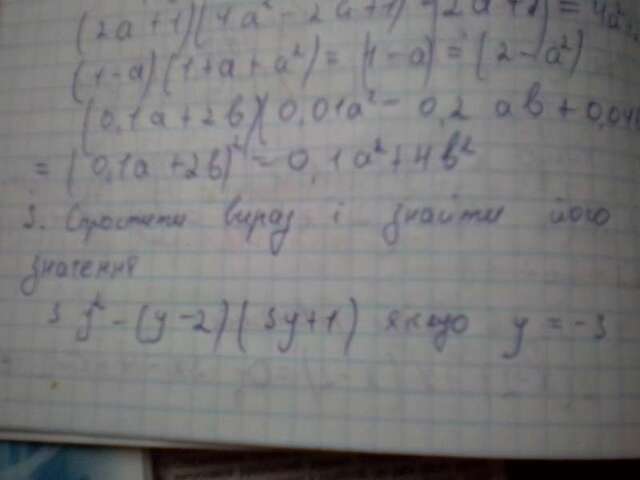 (2a+1)(4a²-2a+1) (2a+1) = 4a²
(1-a)(1+a+a²) = (1-a) = (2-a²)
(0,1a+2b)(0,01a²- 0,2 ab + 0,04
= (0,1a+2b)² = 0,1a²+4b²
3. Спростити вираз і знайти його
значення
3y²-(y-2)(3y+1) якщо y=-3